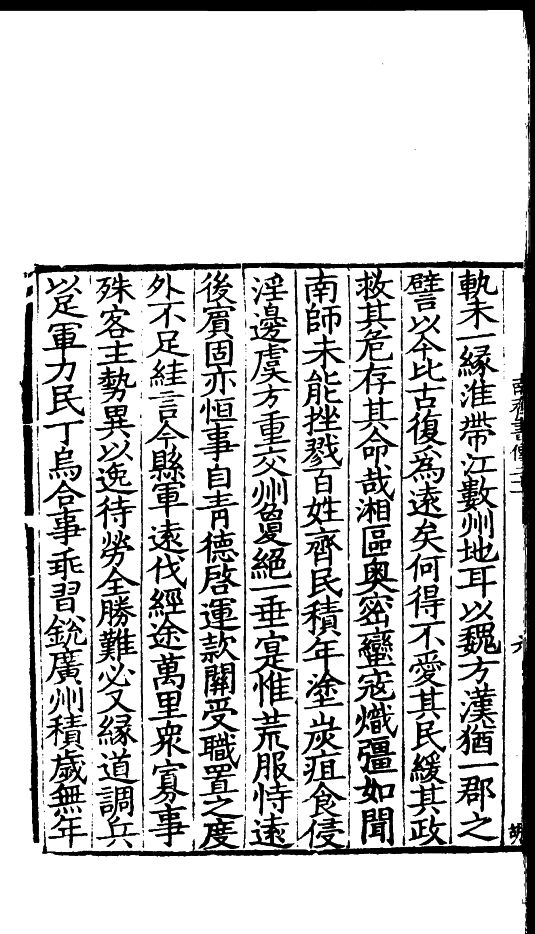 軌未一緣淮帶江數州地耳以魏方漢猶一郡之
譬以今比古復爲遠矣何得不愛其民緩其政
救其危存其命哉湘區奧密蠻寇熾彊如聞
南師未能挫戮百姓齊民積年塗炭疽食侵
淫邊虞方重交州敻絕一垂寔惟荒服恃遠
後賓固亦恒事自靑德啓運款關受職置之度
外不足絓言今縣軍遠伐經途萬里衆寡事
殊客主勢異以逸待勞全勝難必又緣道調兵
以足軍力民丁烏合事乖習銳廣州積歲無年